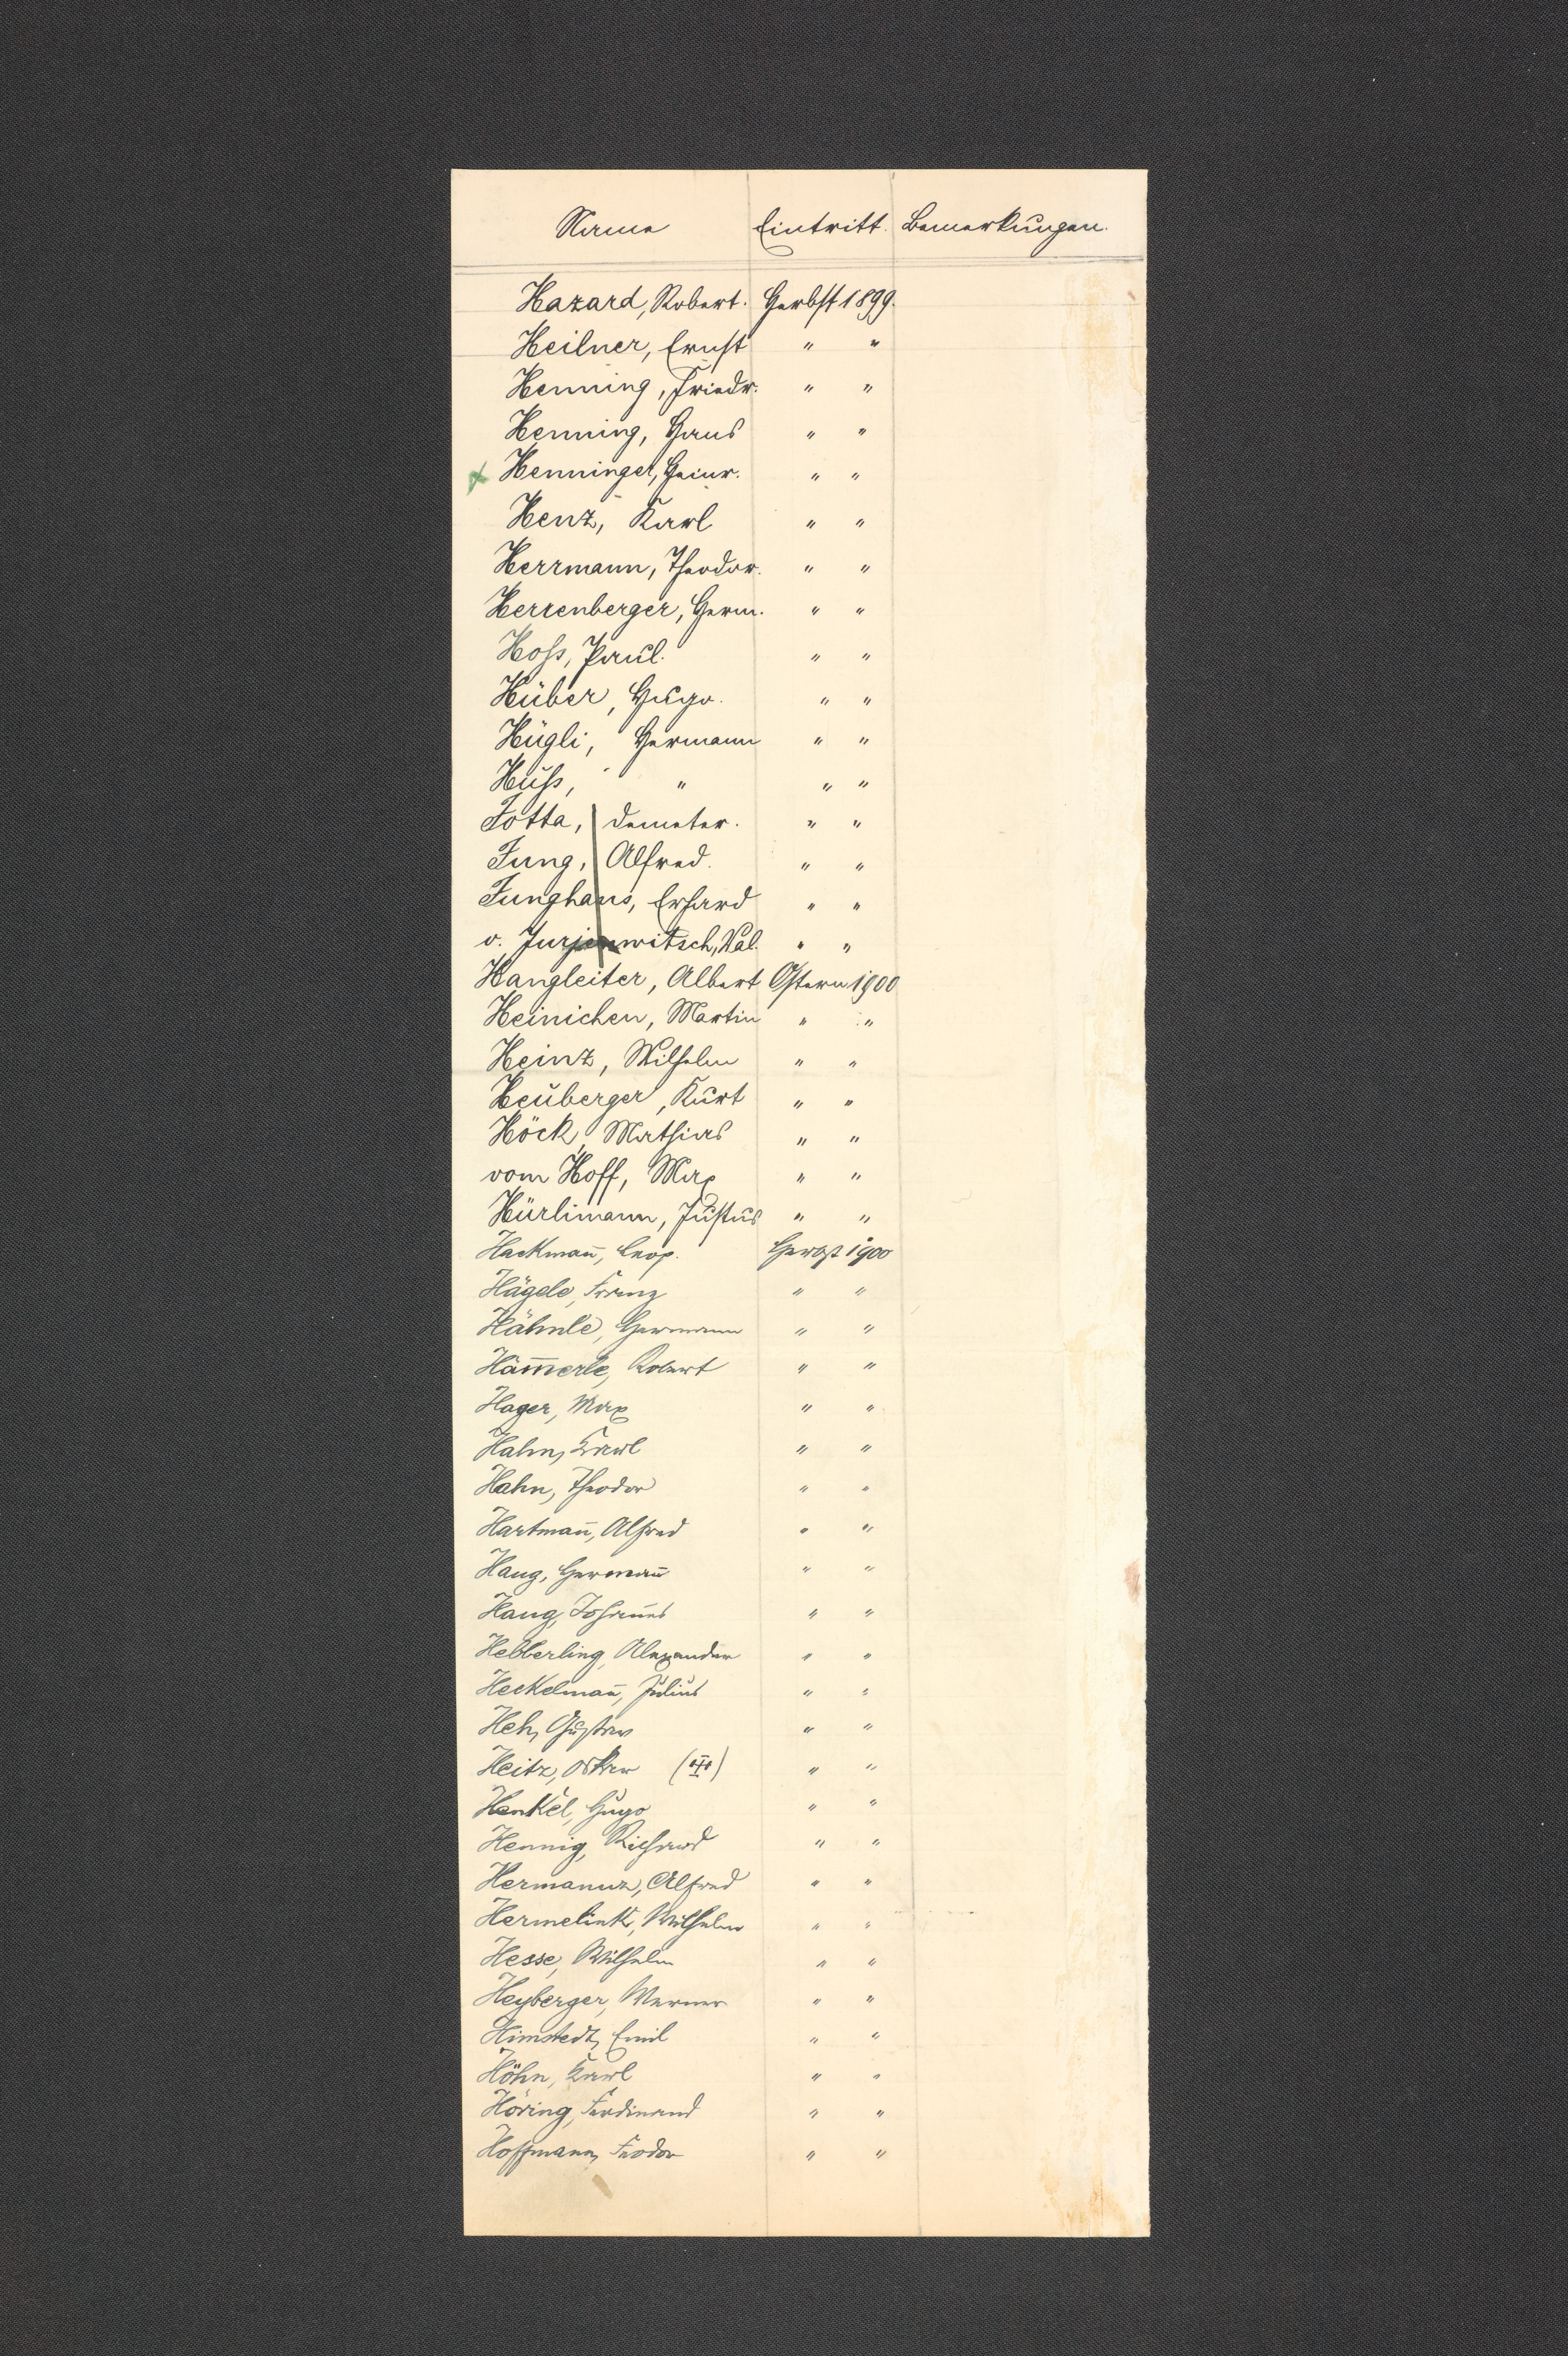 Name Eintritt. Bemerkungen.
Hazard, Robert. Herbst 1899.
Heilner, Ernst " "
Henning, Friedr. " "
Henning, Hans " "
x Henninger, Heinr. " "
Henz, Karl " "
Herrmann, Theodor. " "
Herrenberger, Herm. " "
Hoss, Paul. " "
Hüber, Hugo. " "
Hügli, Hermann " "
Huss, " " "
Jotta, Demeter. " "
Jung, Alfred. " "
Junghans, Erhard " "
v. Jurjenwitsch, Val. " "
Hangleiter, Albert Ostern 1900
Heinichen, Martin " "
Heinz, Wilhelm " "
Heuberger, Kurt " "
Höck, Mathias " "
vom Hoff, Max " "
Hürlimann, Justus " "
Hackmañ, Leop. Herbst 1900
Hägele, Franz " "
Hähnle, Hermann " "
Häm̄erle, Robert " "
Hager, Max " "
Hahn, Karl " "
Hahn, Theodor " "
Hartmañ, Alfred " "
Haug, Hermañ " "
Haug, Johañes " "
Hebberling, Alexander " "
Heckelmañ, Julius " "
Heh, Gustav " "
Heitz, Oskar (III) " "
Henkel, Hugo " "
Hennig, Richard " "
Hermanuz, Alfred " "
Hermelink, Wilhelm " "
Hesse, Wilhelm " "
Heyberger, Werner " "
Himstedt, Emil " "
Höhn, Karl " "
Höring, Ferdinand " "
Hoffmann, Feodor " "